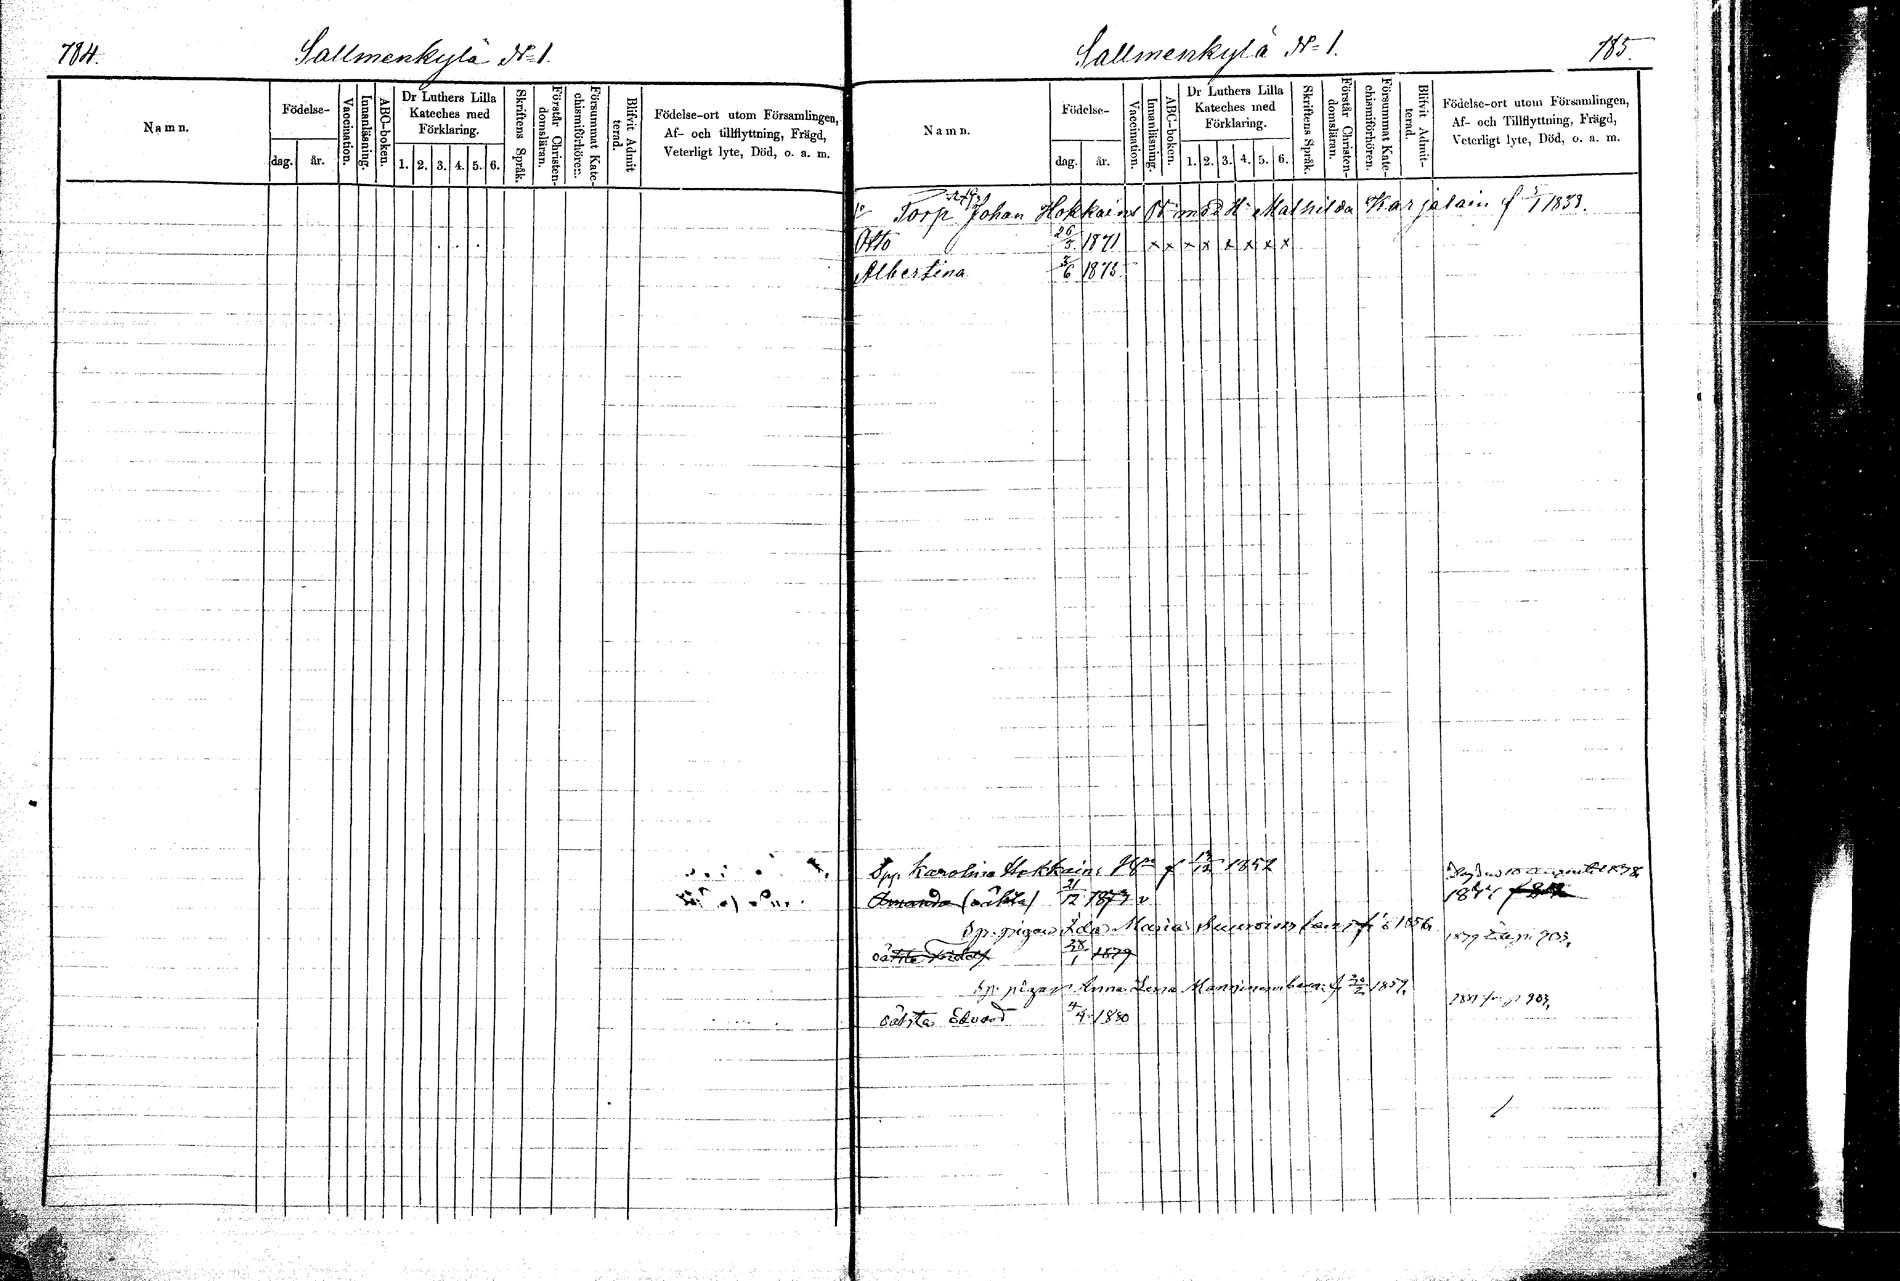 784.
Sallmenkylä N=1.
Namn.
Födelse-
dag.
år.
Vaccination.
Innanläsning.
ABC-boken.
Dr Luthers Lilla
Kateches med
Förklaring.
1. 2. 3. 4. 5. 6.
Skriftens Språk.
Förstår Christen-
domsläran.
Försummat Kate-
chismiförhören.
Blifvit Admit
terad.
Födelse-ort utom Församlingen,
Af- och tillflyttning, Frägd,
Veterligt lyte, Död, o. a. m.
Sallmenkylä N=1.
785.
Namn.
Födelse-
dag.
år.
Vaccination.
Innanläsning.
ABC-boken.
Dr Luthers Lilla
Kateches med
Förklaring.
1. 2. 3. 4. 5. 6.
Skriftens Språk.
Förstår Christen-
domsläran.
Försummat Kate-
chismiförhören.
Blifvit Admit-
terad.
Födelse-ort utom Församlingen,
Af- och Tillflyttning, Frägd,
Veterligt lyte, Död, o. a. m.
Torp Johan Hokkaine med H Mathilda Karjalain f 5/1 1833.
Otto 26/5 1871 x x x x x x x x
Albertina 3/6 1873.
Karolina Hokkain f 1852
Amanda (oäkta) 21/12 1873 v
Ida Maria 1856
oäkta 28/1 1879
1879 903.
Anna Lena f 1857.
903.
oäkta Edvard 4/4 1880